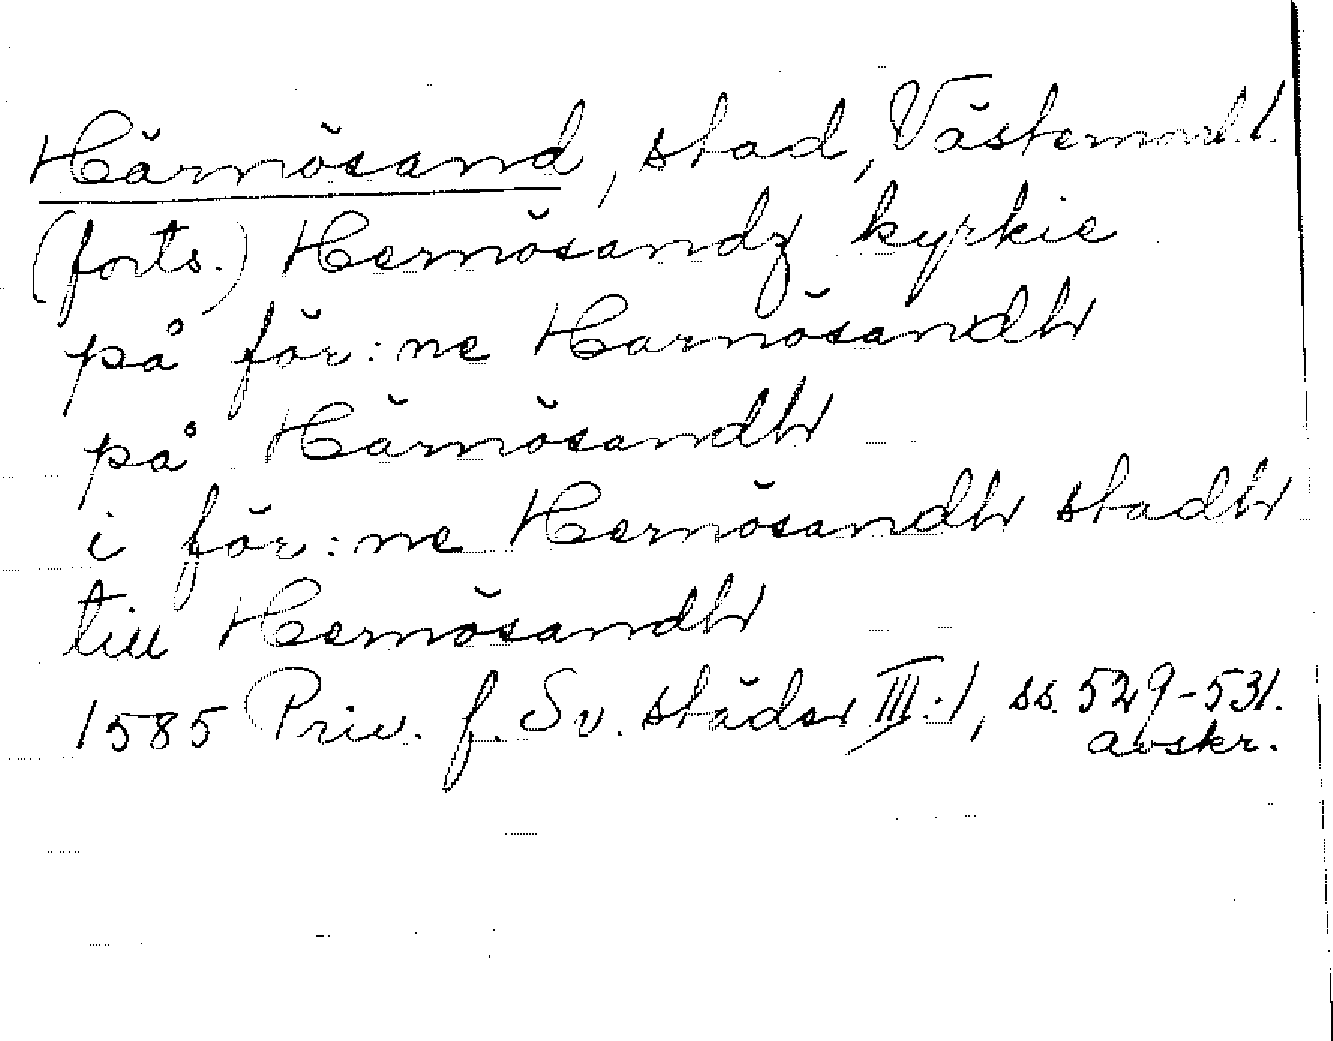 Härnösand, stad, Västernorrl.l.
(forts.) Hernösandz kyrkie
på för:ne Harnösandh
på Härnösandh
i för:ne Hernösandh stadh
till Hernösandh
1585 Priv. f. Sv. städer III:1, ss. 529-531.
avskr.